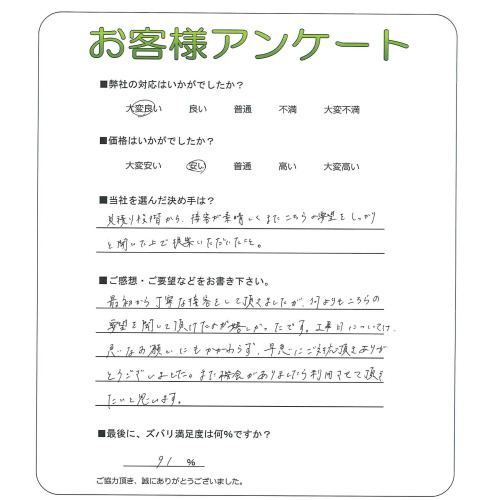 お客様アンケート
■弊社の対応はいかがでしたか？
大変良い 良い 普通 不満 大変不満
■価格はいかがでしたか？
大変安い 安い 普通 高い 大変高い
■当社を選んだ決め手は？
見積り段階から、接客が素晴しくまたこちらの要望をしっかり
と聞いた上で提案いただいたこと。
■ご感想・ご要望などをお書き下さい。
最初から丁寧な接客をして頂きましたが、何よりもこちらの
要望を聞いて頂けたのが嬉しかったです。工事日については、
急なお願いにもかかわらず、早急にご対応頂きありが
とうございました。また機会がありましたら利用させて頂き
たいと思います。
■最後に、ズバリ満足度は何％ですか？
91 ％
ご協力頂き、誠にありがとうございました。